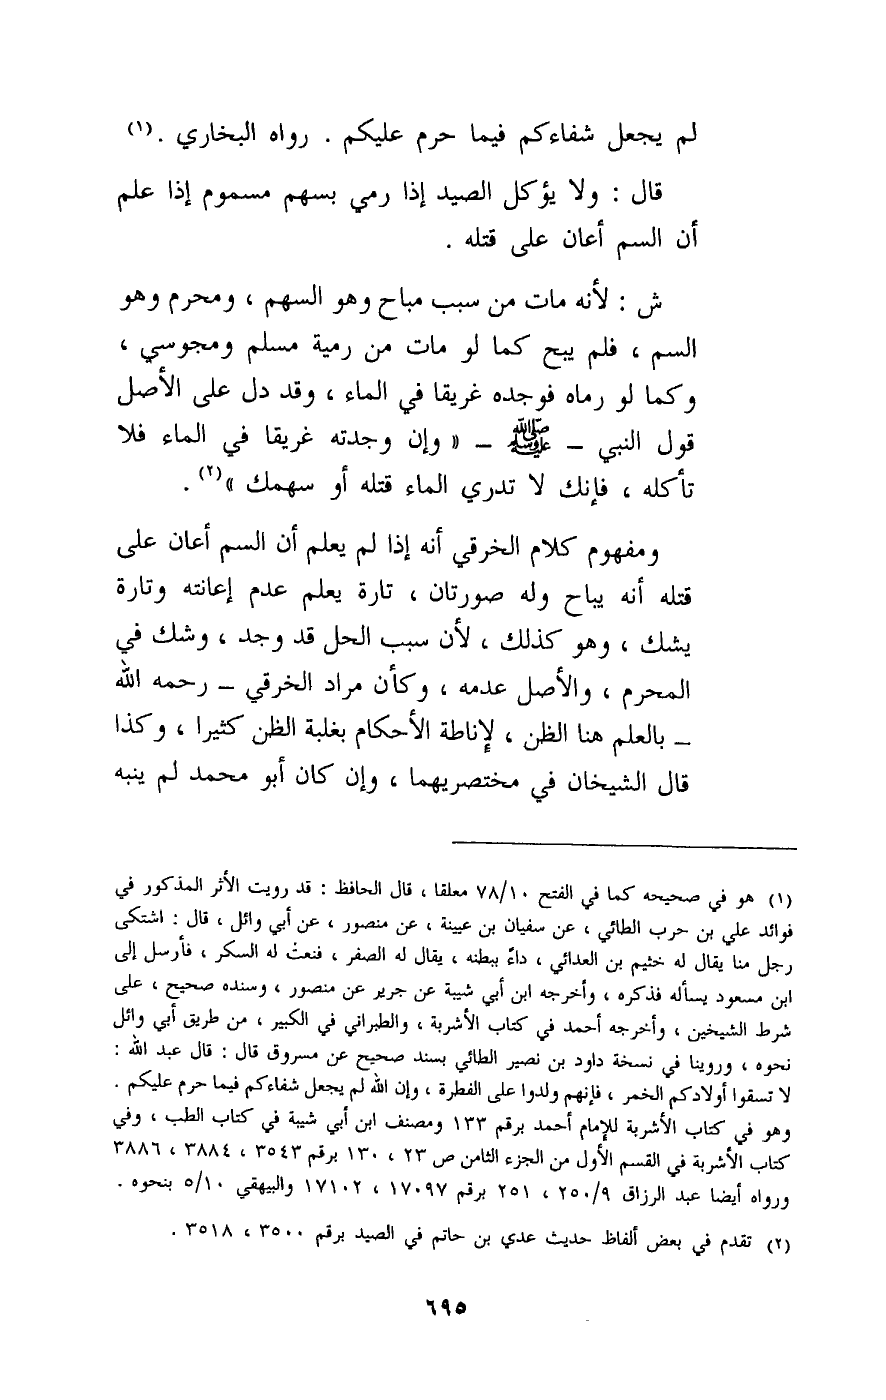 لم يجعل شفاءكم فيما حرم عليكم . رواه البخاري . (١)
قال : ولا يؤكل الصيد إذا رمي بسهم مسموم إذا علم
أن السم أعان على قتله .
ش : لأنه مات من سبب مباح وهو السهم ، ومحرم وهو
السم ، فلم يبح كما لو مات من رمية مسلم ومجوسي ،
وكما لو رماه فوجده غريقا في الماء ، وقد دل على الأصل
قول النبي – ﷺ – « وإن وجدته غريقا في الماء فلا
تأكله ، فإنك لا تدري الماء قتله أو سهمك »(٢) .
ومفهوم كلام الخرقي أنه إذا لم يعلم أن السم أعان على
قتله أنه يباح وله صورتان ، تارة يعلم عدم إعانته وتارة
يشك ، وهو كذلك ، لأن سبب الحل قد وجد ، وشك في
المحرم ، والأصل عدمه ، وكأن مراد الخرقي – رحمه الله
– بالعلم هنا الظن ، لإناطة الأحكام بغلبة الظن كثيرا ، وكذا
قال الشيخان في مختصريهما ، وإن كان أبو محمد لم ينبه
(١) هو في صحيحه كما في الفتح ٧٨/١٠ معلقا ، قال الحافظ : قد رويت الأثر المذكور في
فوائد علي بن حرب الطائي ، عن سفيان بن عيينة ، عن منصور ، عن أبي وائل ، قال : اشتكى
رجل منا يقال له خثيم بن العدائي ، داءً ببطنه ، يقال له الصفر ، فنعث له السكر ، فأرسل إلى
ابن مسعود يسأله فذكره ، وأخرجه ابن أبي شيبة عن جرير عن منصور ، وسنده صحيح ، على
شرط الشيخين ، وأخرجه أحمد في كتاب الأشربة ، والطبراني في الكبير ، من طريق أبي وائل
نحوه ، وروينا في نسخة داود بن نصير الطائي بسند صحيح عن مسروق قال : قال عبد الله :
لا تسقوا أولادكم الخمر ، فإنهم ولدوا على الفطرة ، وإن الله لم يجعل شفاءكم فيما حرم عليكم .
وهو في كتاب الأشربة للإمام أحمد برقم ١٣٣ ومصنف ابن أبي شيبة في كتاب الطب ، وفي
كتاب الأشربة في القسم الأول من الجزء الثامن ص ٢٣ ، ١٣٠ برقم ٣٥٤٣ ، ٣٨٨٤ ، ٣٨٨٦
ورواه أيضا عبد الرزاق ٢٥٠/٩ ، ٢٥١ برقم ١٧٠٩٧ ، ١٧١٠٢ والبيهقي ٥/١٠ بنحوه .
(٢) تقدم في بعض ألفاظ حديث عدي بن حاتم في الصيد برقم ٣٥٠٠ ، ٣٥١٨ .
٦٩٥